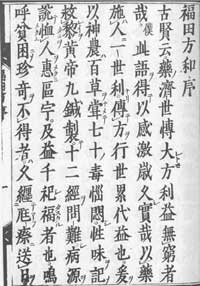 福田方和序
古賢云藥濟世傳大方利益無窮者
哉此語得以感激歳久實哉以藥
施人一世利傳方行世累代益也爰
以神農百草嘗七十毒惱悶性味記
黄帝九鍼製十二經問難病源
恤人惠區及益千祀福者也嗚
呼貧困珍奇不得者久經瘵送日